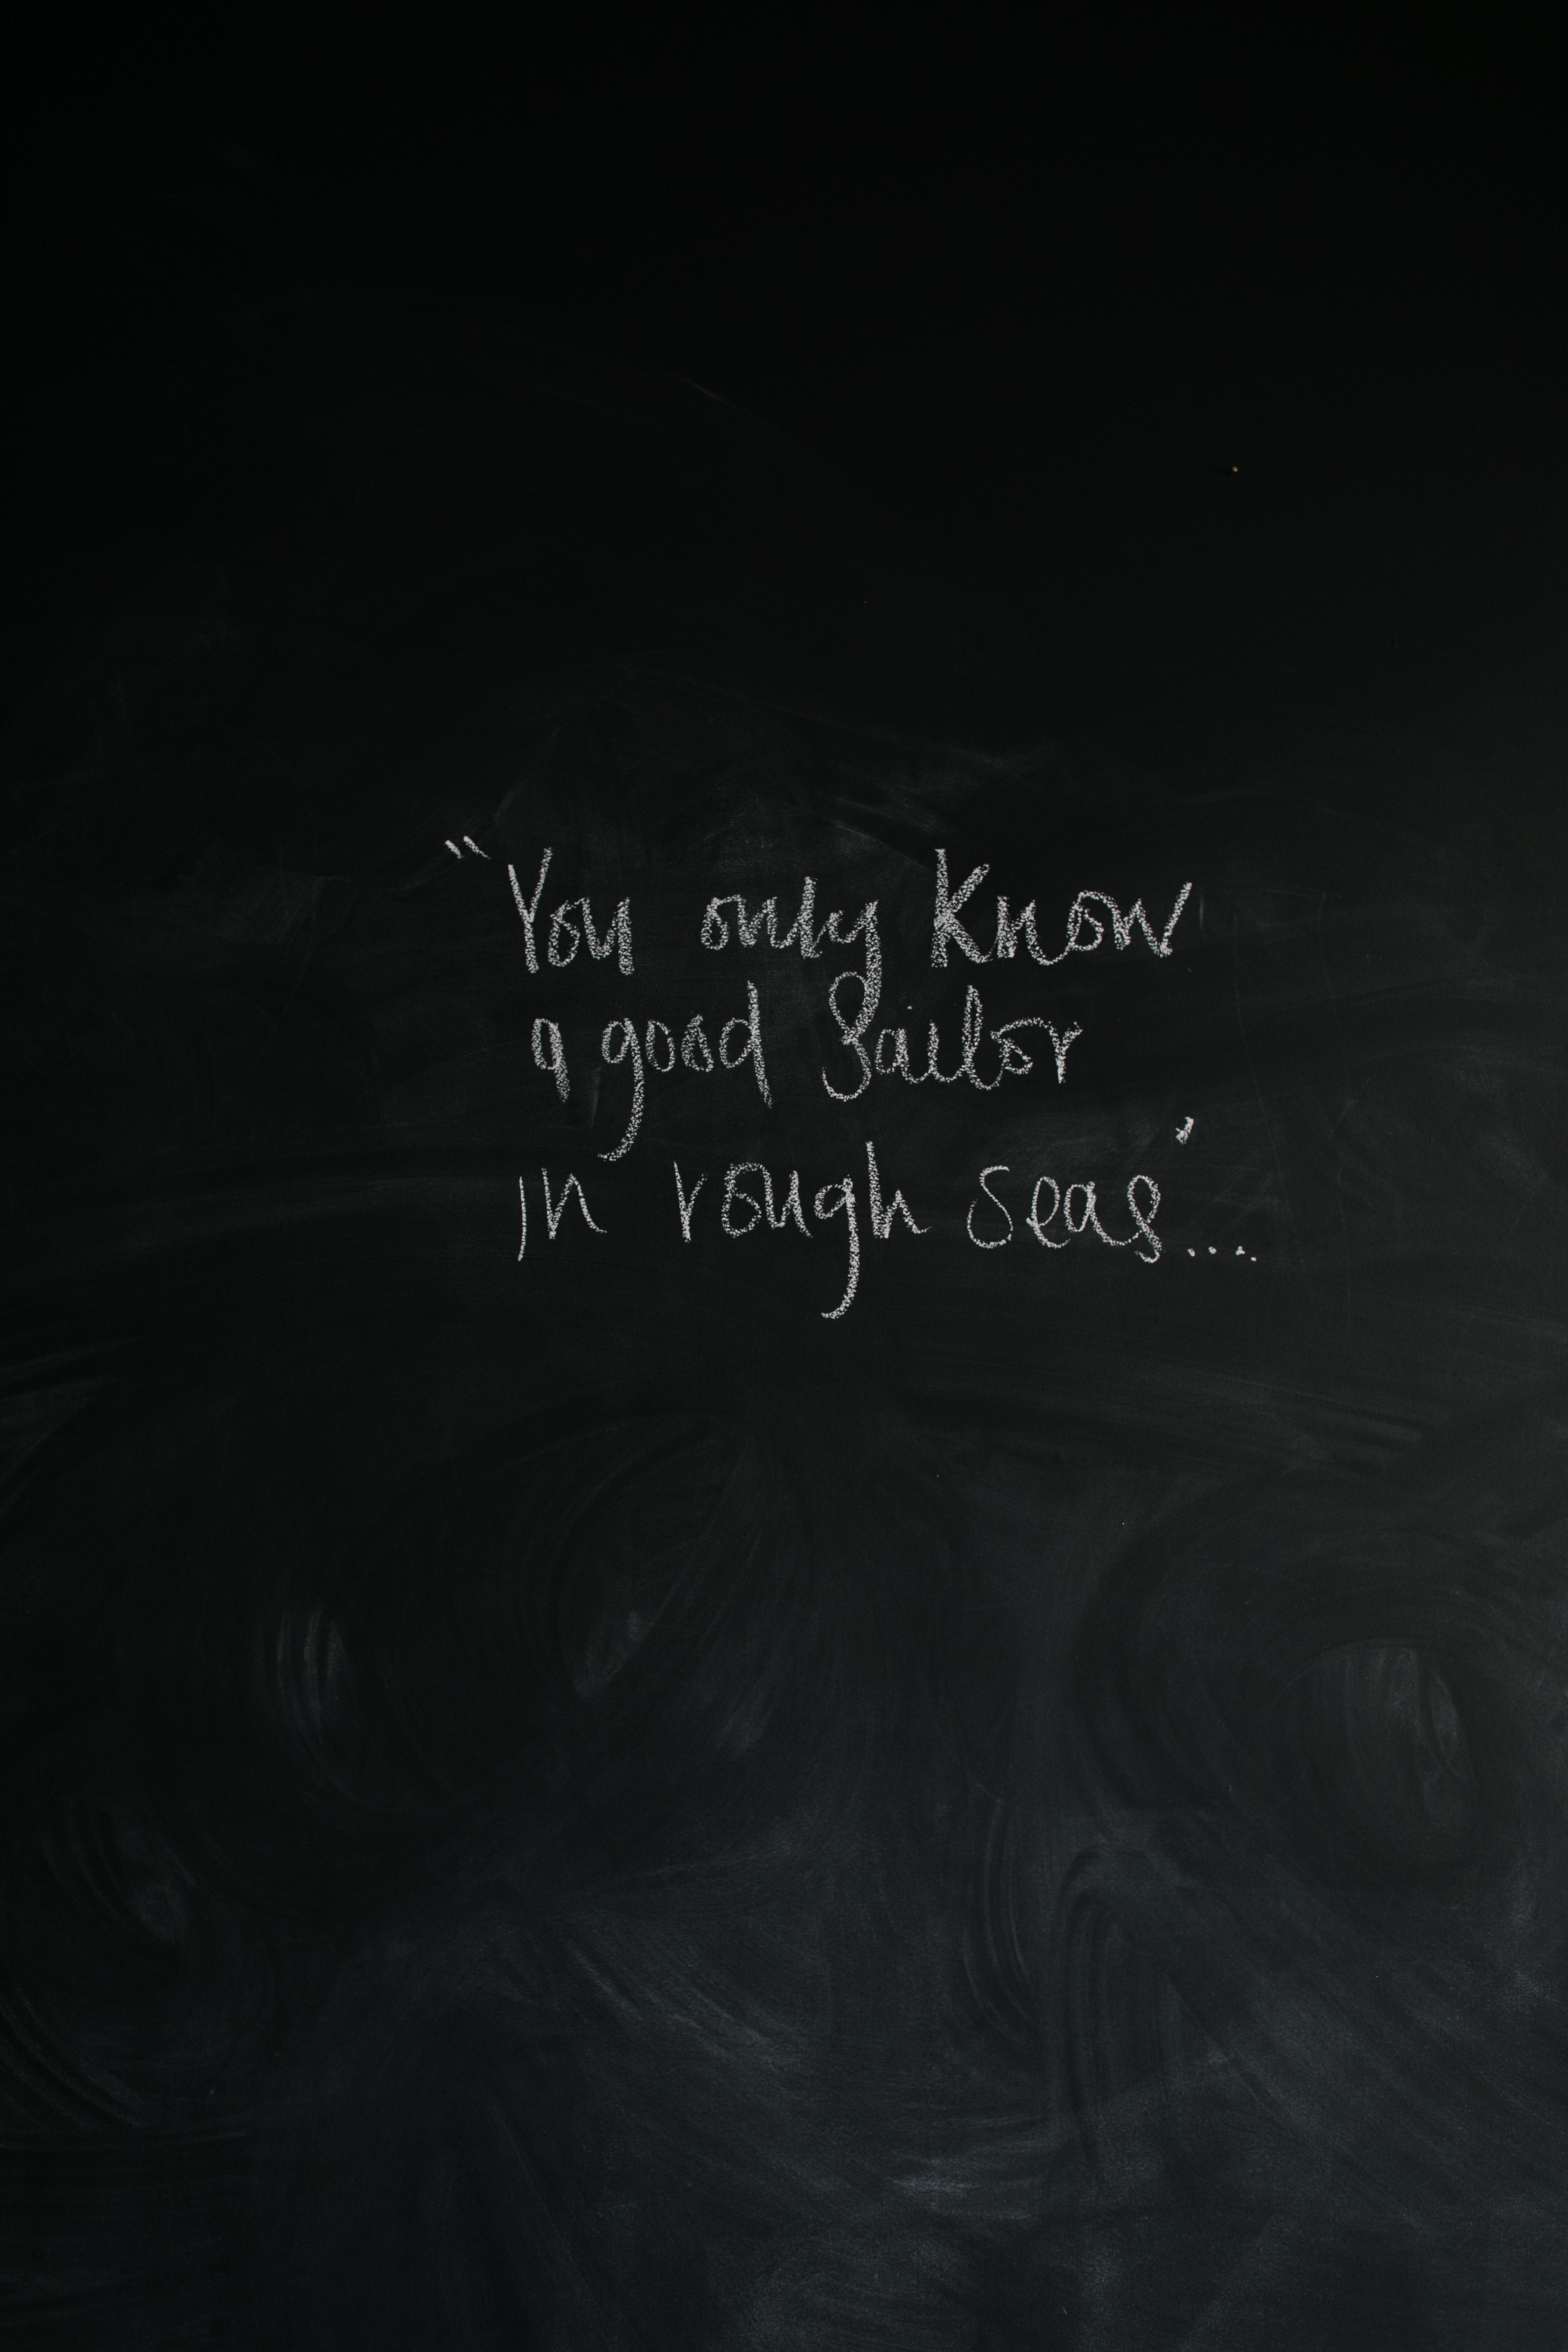 "You only know
a good Sailor
in rough seas"....